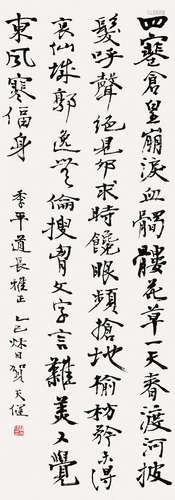 四塞倉皇崩淚血髑髏花草一天春渡河披
髮呼聲絕見卵求時饞眼頻搶地榆枋矜未得
哀仙城郭逸無倫搜胃文字言難美又覺
東風寒偪身
季平道長雅正 乙巳秋日賀天健